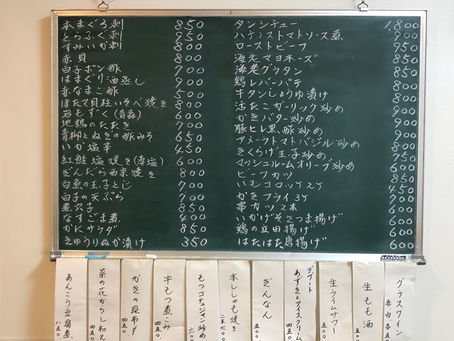 本まぐろ刺 850
とらふぐ刺 950
すみいか刺 800
赤貝 800
白子ポン酢 700
はまぐり酒蒸し
赤なまこ酢 500
ほたて貝柱いそべ焼き 800
岩もずく(青森) 600
地鶏のたたき 700
青柳とねぎの酢みそ 650
いか塩辛 450
紅鮭塩焼き 600
ぎんだら西京焼き 800
白魚の玉子とじ 700
白子の天ぷら 700
煮穴子 850
なすごま煮 400
かにサラダ 800
きゅうりぬか漬け 350
タンシチュー 1,800
ハチノストマトソース煮 900
ローストビーフ 950
海老マヨネーズ
海老グラタン
鶏レバーパテ
牛タンしょうゆ焼き
活たこガーリック炒め
かきバター炒め
豚ヒレ黒酢炒め
アスパラトマトバジル炒め
きくらげ玉子炒め 750
マッシュルームオリーブ炒め 650
ビーフカツ 850
いもコロッケ2ケ 450
かきフライ3ケ 700
串カツ2本 600
いかげそさつま揚げ 600
鶏の立田揚げ 600
はたはた唐揚げ 600
グラスワイン
生もも酒
生ライムサワー
デザート
あずきとアイスクリーム
ぎんなん
本ししゃも焼き
もつコチュジャン炒め
牛もつ煮こみ
かきの昆布〆
菜の花からし和え
あんこう豆腐煮